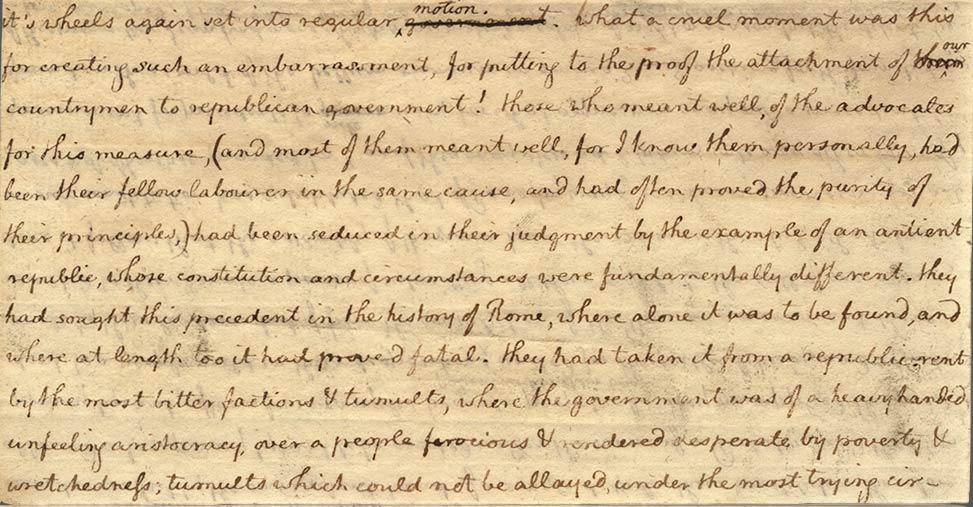 it's wheels again set into regular government motion. What a cruel moment was this
for creating such an embarrassment, for putting to the proof the attachment of our
countrymen to republican government! those who meant well, of the advocates
for this measure, (and most of them meant well, for I know them personally, had
been their fellow labourer in the same cause, and had often proved the purity of
their principles,) had been seduced in their judgment by the example of an antient
republic, whose constitution and circumstances were fundamentally different. they
had sought this precedent in the history of Rome, where alone it was to be found, and
where at length too it had proved fatal. they had taken it from a republic, rent
by the most bitter factions & tumults, where the government was of a heavyhanded
unfeeling aristocracy, over a people ferocious & rendered desperate by poverty &
wretchedness; tumults which could not be allayed under the most trying cir-